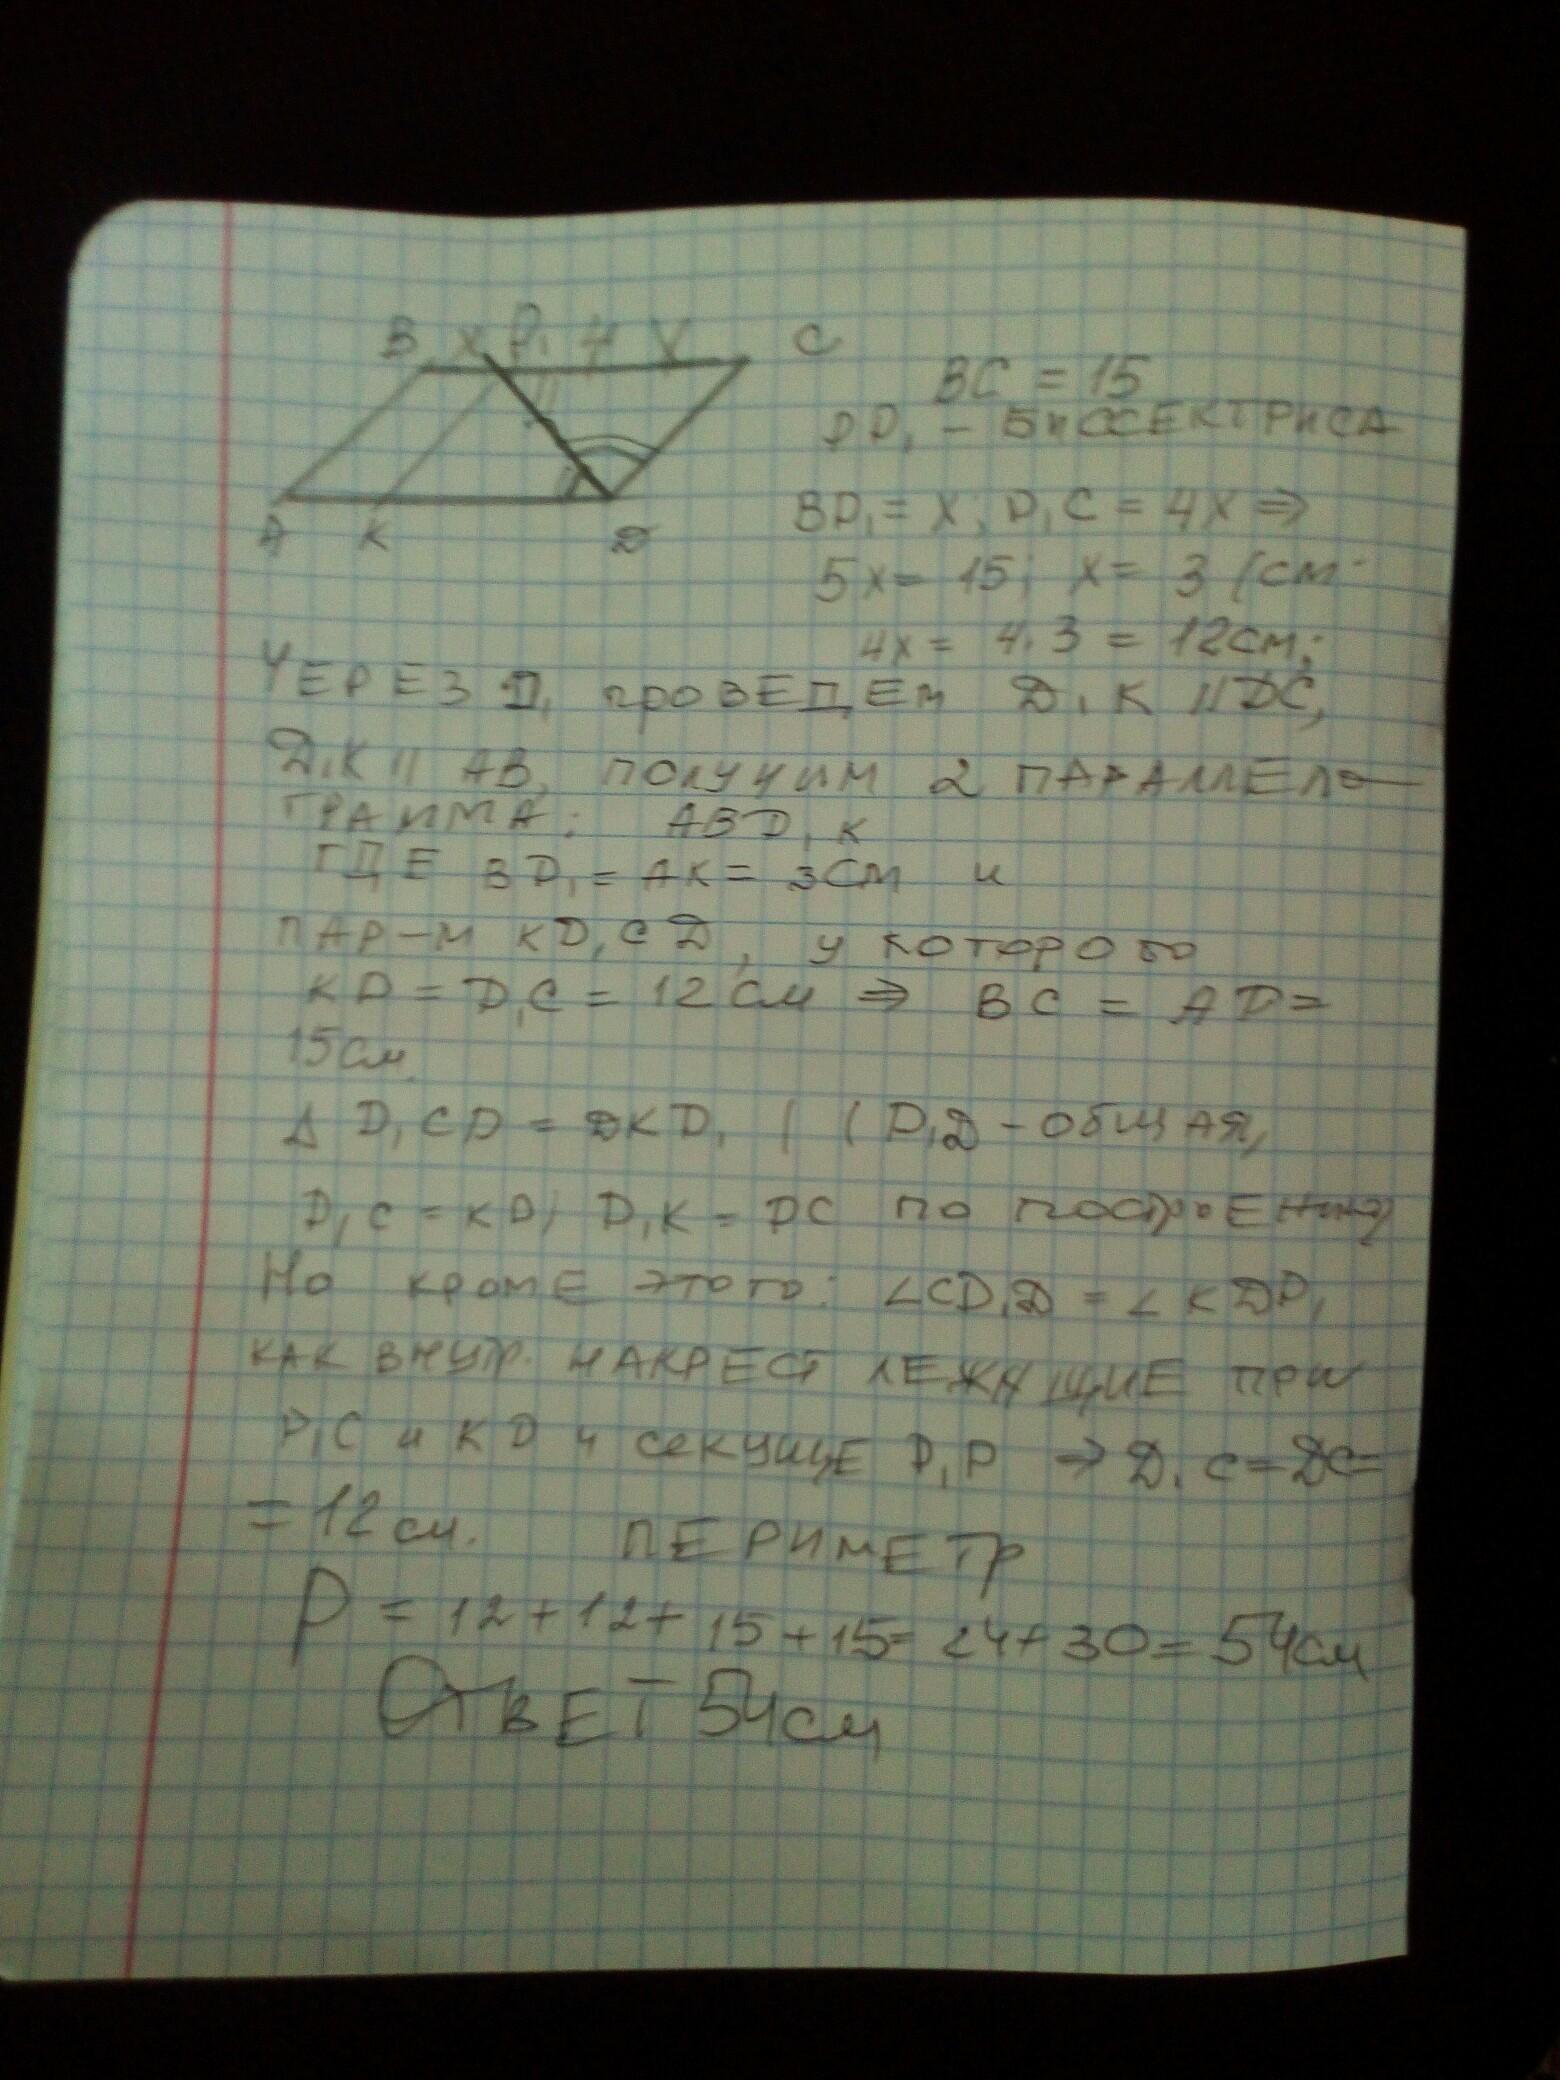 B X D₁ 4 X C
A K D
BC = 15
DD₁ - БИССЕКТРИСА
BD₁ = X; D₁C = 4X ⇒
5X = 15; X = 3 (см
4X = 4·3 = 12см;
ЧЕРЕЗ D₁ проВЕДЕМ D₁K || DC,
D₁K || AB, получим 2 ПАРАЛЛЕЛО-
ГРАММА: ABD₁K
ГДЕ BD₁ = AK = 3см и
ПАР-М KD₁CD, у которого
KD = D₁C = 12см ⇒ BC = AD =
15см.
Δ D₁CD = DKD₁ ( (D₁D - общая,
D₁C = KD; D₁K = DC по построЕнию)
Но кромЕ этого: ∠CD₁D = ∠KDD₁
как внутр. НАКРЕСТ ЛЕЖАЩИЕ при
D₁C и KD и секущЕ D₁D ⇒ D₁C = DC =
= 12 см. ПЕРИМЕТР
P = 12 + 12 + 15 + 15 = 24 + 30 = 54см
ОТВЕТ 54см